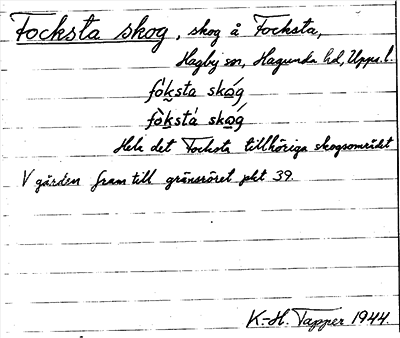 Focksta skog, skog å Focksta,
Hagby sn, Hagunda hd, Upps. l.
fo̊ksta skóg
fòkstá skóg
Hela det Focksta tillhöriga skogsområdet
V gården fram till gränsröret pkt 39.
K.-H. Tapper 1944.